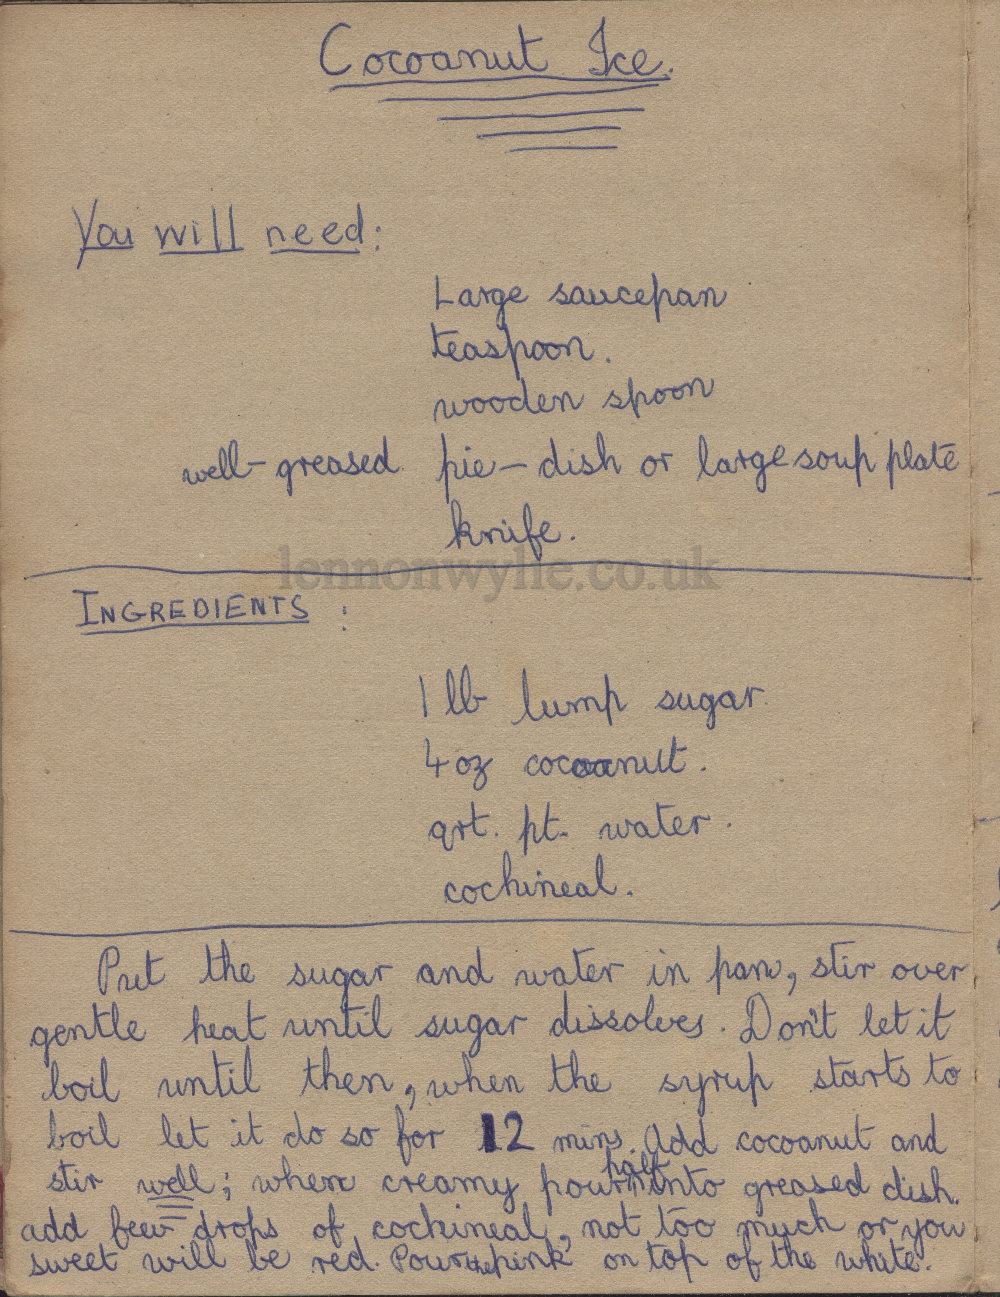 Cocoanut Ice.
You will need:
Large saucepan
teaspoon.
wooden spoon
well-greased pie-dish or large soup plate
knife.
lennonwylie.co.uk
INGREDIENTS :
1 lb lump sugar
4 oz cocoanut.
qrt. pt. water.
cochineal.
Put the sugar and water in pan, stir over
gentle heat until sugar dissolves. Don't let it
boil until then, when the syrup starts to
boil let it do so for 12 mins. Add cocoanut and
stir well; when creamy pour half into greased dish.
add few drops of cochineal, not too much or you
sweet will be red. Pour the pink on top of the white.